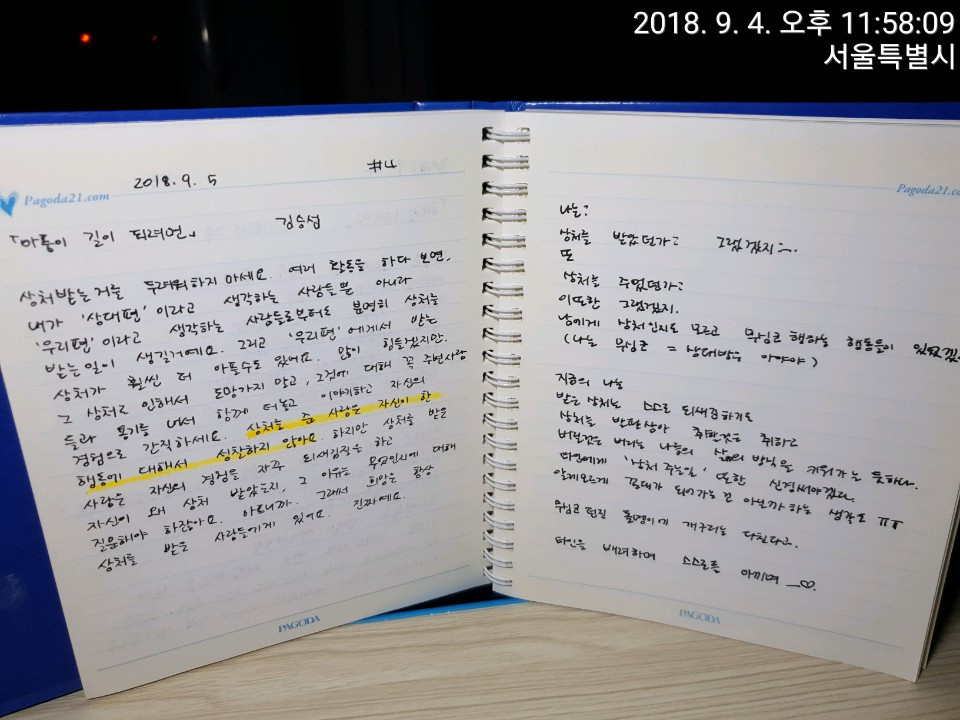 2018. 9. 4. 오후 11:58:09
서울특별시
#4
2018. 9. 5
Pagoda21.com
「아픔이 길이 되려면」 김승섭
상처받는 거를 두려워하지 마세요. 여러 활동을 하다 보면,
내가 '상대편'이라고 생각하는 사람들뿐 아니라
'우리편'이라고 생각하는 사람들로부터도 분명히 상처를
받는 일이 생길거예요. 그리고 '우리편'에게서 받는
상처가 훨씬 더 아플수도 있어요. 많이 힘들겠지만.
그 상처로 인해서 도망가지 말고, 그것에 대해 꼭 주변사람
들과 용기를 내서 함께 터놓고 이야기하고 자신의
경험으로 간직하세요. 상처를 준 사람은 자신이 한
행동에 대해서 성찰하지 않아요. 하지만 상처를 받은
사람은 자신의 경험을 자꾸 되새김질을 하고
자신이 왜 상처 받았는지, 그 이유는 무엇인지에 대해
질문해야 하잖아요. 아파니까. 그래서 희망은 항상
상처를 받은 사람들에게 있어요. 진짜예요.
PAGODA
Pagoda21.c
나는?
상처를 받았던가? 그랬겠지
또
상처를 주었던가?
이또한 그랬겠지.
남에게 상처인지도 모르고 무심코 행하는 행동들이 있었겠
(나는 무심코 = 상대방은 아야야)
지금의 나는
받은 상처는 스스로 되새김하기도
상처를 발판삼아 취할것은 취하고
버릴것은 버리는 나름의 삶의 방식을 키워가는 듯하다.
타인에게 '상처 주는일' 또한 신경써야겠다.
알게모르게 꼰대가 되어가는건 아닐까하는 생각도 ㅠㅠ
무심코 던진 돌멩이에 개구리는 다친다고.
타인을 배려하며 스스로를 아끼며 _♡.
PAGODA